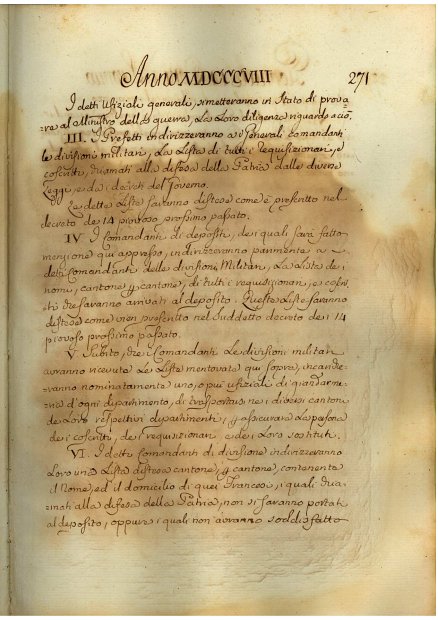 Anno MDCCCVIII 271
I detti Ufiziali generali, si metteranno in Stato di prova
re al Ministro della guerra, La Loro diligenza riguardo a ciò.
III. I Prefetti indirizzeranno a i Generali comandanti
le divisioni militari, La Lista di tutti i requisizionari, e
coscritti, chiamati alla difesa della Patria dalle diverse
Leggi, e da i decreti del Governo.
Le dette Liste saranno distese come è prescritto nel
decreto de 14 piovoso prossimo passato.
IV. I Comandanti di depositi, de i quali sarà fatto
menzione qui appresso, indirizzeranno parimente a i
detti Comandanti delle divisioni Militari, La Lista de i
nomi, cantone per cantone, di tutti i requisizionari, e coscrit
ti che saranno arrivati al deposito. Queste Liste saranno
distese come vien prescritto nel suddetto decreto de i 14
piovoso prossimo passato.
V. Subito, che i Comandanti Le divisioni militari
avranno ricevuta Le Liste mentovate qui sopra, incariche
ranno nominatamente uno, o più ufiziali di giandar
meria d'ogni dipartimento, di trasportarsi ne i diversi cantoni
de Loro respettivi dipartimenti, per assicurare La persona
de i coscritti, de i requisizionari e de i Loro sostituti.
VI. I detti comandanti di divisione indirizzeranno
Loro una Lista distesa cantone, per cantone, contenente
il Nome, ed il domicilio di quei Francesi, i quali chia
mati alla difesa della Patria, non si saranno portati
al deposito, oppure i quali non avranno soddisfatto